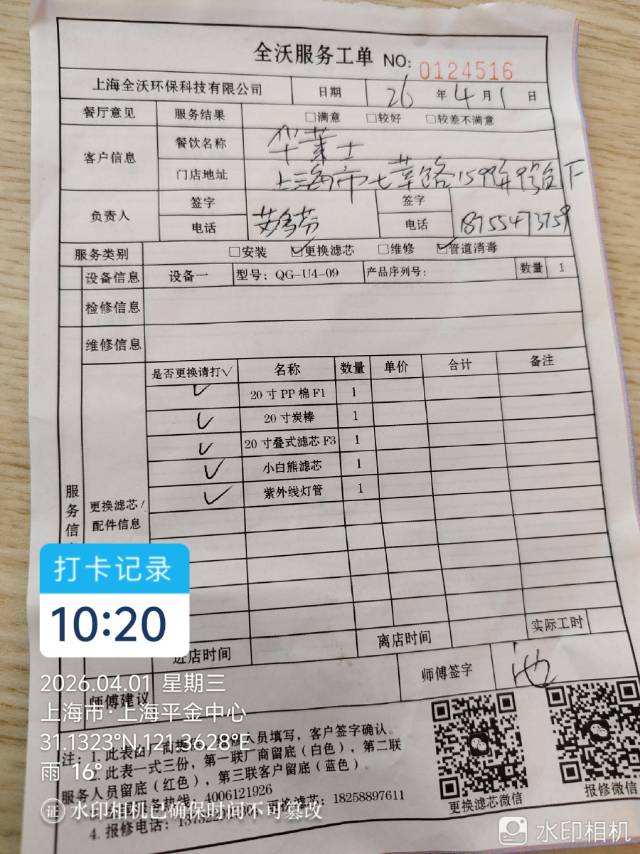 全沃服务工单 NO: 0124516
上海全沃环保科技有限公司 日期 26 年 4 月 1 日
餐厅意见 服务结果 □满意 □较好 □较差不满意
客户信息 餐饮名称 华莱士
门店地址 上海市七莘路1599弄9号
负责人 签字 签字
电话 电话
服务类别 □安装 ☑更换滤芯 □维修 ☑管道消毒
设备信息 设备一 型号: QG-U4-09 产品序列号: 数量 1
检修信息
维修信息
是否更换请打√ 名称 数量 单价 合计 备注
✓ 20寸PP棉F1 1
✓ 20寸炭棒 1
✓ 20寸叠式滤芯F3 1
✓ 小白熊滤芯 1
✓ 紫外线灯管 1
服务信
更换滤芯/
配件信息
打卡记录
10:20
实际工时
进店时间 离店时间
师傅签字
师傅建议
2026.04.01 星期三
上海市·上海平金中心
31.1323°N,121.3628°E
雨 16°
注: 1.此表由 人员填写，客户签字确认。
此表一式三份，第一联厂商留底（白色），第二联
服务人员留底（红色），第三联客户留底（蓝色）。
4006121926
4.报修电话: 更换滤芯: 18258897611
更换滤芯微信 报修微信
证 水印相机已确保时间不可篡改
水印相机